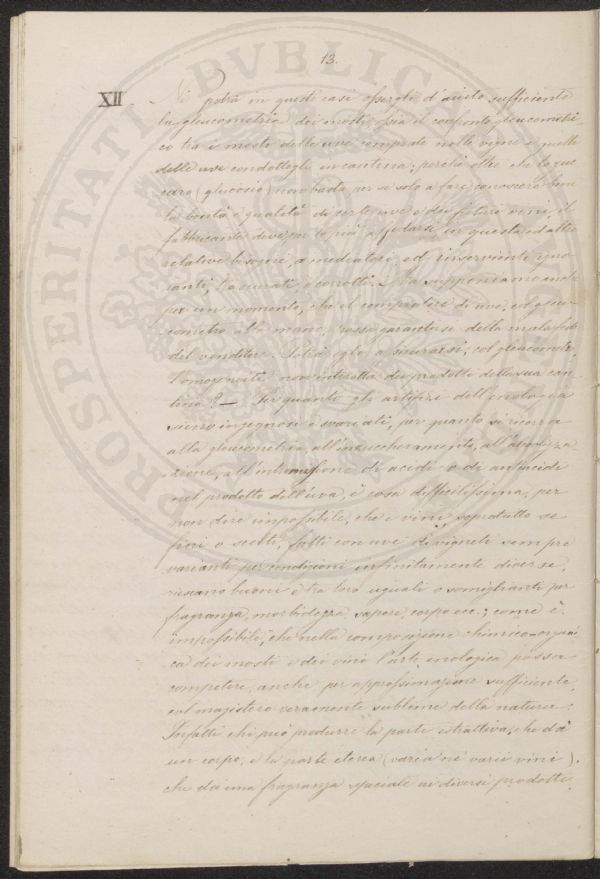 13.
XII
Nè potrà in questi casi essergli d'aiuto sufficiente
la gleucometria dei mosti, ossia il confronto gleucometri
co tra i mosti delle uve comprate nelle vigne e quelli
delle uve condottegli in cantina; perchè oltre che lo zuc
caro (glucosio) non basta per se solo a fare conoscere bene
la bontà e qualità di certe uve e dei futuri vini, il
fabbricante deve, per lo più, affidarsi in questa ed altre
relative bisogne, a mediatori, ed inservienti igno-
ranti, trascurati, o corrotti. Ma supponiamo anche
per un momento, che il compratore di uve, col gleu-
cometro alla mano, possa garantirsi della malafede
del venditore. Potrà egli assicurarsi, col gleucometro,
l'omogeneità non interrotta dei prodotti della sua can
tina? — Per quanto gli artifizi dell'enologia
sieno ingegnosi e svariati, per quanto si ricorra
alla gleucometria, all'inzuccheramento,
zione, all'intromissione di acidi o di antiacidi
nel prodotto dell'uva, è cosa difficilissima, per
non dire impossibile, che i vini, sopratutto se
fini o scelti, fatti con uve di vigneti sempre
varianti per condizioni infinitamente diverse,
riescano buoni e tra loro uguali o somiglianti per
fragranza, morbidezza, sapore, corpo ecc.; come è
impossibile, che nella composizione chimico-organi
ca dei mosti e dei vini l'arte enologica possa
competere, anche per approssimazione sufficiente,
col magistero veramente sublime della natura:
Infatti chi può produrre la parte estrattiva, che dà
un corpo, e la parte eterea (varia nei varii vini),
che dà una fragranza speciale ai diversi prodotti
PROSPERITATI PVBLICAE